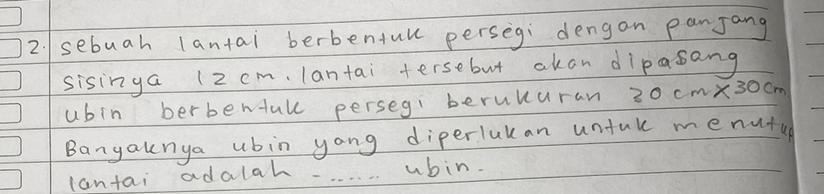 2. sebuah lantai berbentuk persegi dengan panjang
sisinya 12 cm. lantai tersebut akan dipasang
ubin berbentuk persegi berukuran 30 cm x 30 cm
Banyaknya ubin yang diperlukan untuk menutup
lantai adalah ...... ubin.